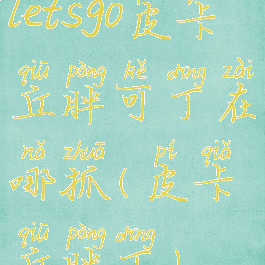 letsgo皮卡
qiū pàng kě dīng zài
丘胖可丁在
nǎ zhuā pí qiǎ
哪抓(皮卡
qiū pàng dīng
丘胖丁)